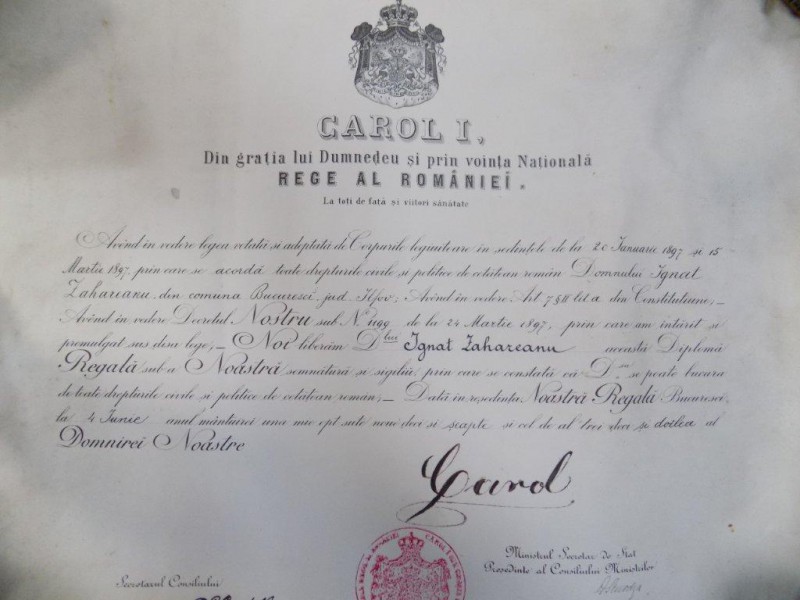 CAROL I,
Din grația lui Dumnedeu și prin voința Natională
REGE AL ROMÂNIEÍ.
La toti de fată și viitori sănătate
Avénd in vedere legea votată si adoptată de Corpurile legiuitoare in sedintele de la 20 Ianuarie 1897 și 15
Martie 1897, prin care se acordă toate drepturile civile si politice de cetătean român Domnului Ignat
Zahareanu din comuna Bucuresci, jud Ilfov; Avénd in vedere Art 7 § II lit a din Constitutiune,-
Avénd in vedere Decretul Nostru sub N° 1199 de la 24 Martie 1897, prin care am intărit si
promulgat sus disa lege,- Noi liberăm D lui Ignat Zahareanu această Diplomă
Regală sub a Noastră semnătură si sigiliŭ, prin care se constată că D. se poate bucura
de toate drepturile civile si politice de cetătean român;- Dată in resedinta Noastră Regală Bucuresci,
la 4 Iunie anul mântuirei una mie opt sute noué deci si séapte si cel de al trei deci și doilea al
Domnirei Noastre
Carol
Ministrul Secretar de Stat
Presedinte al Consiliului Ministrilor
Secretarul Consiliului